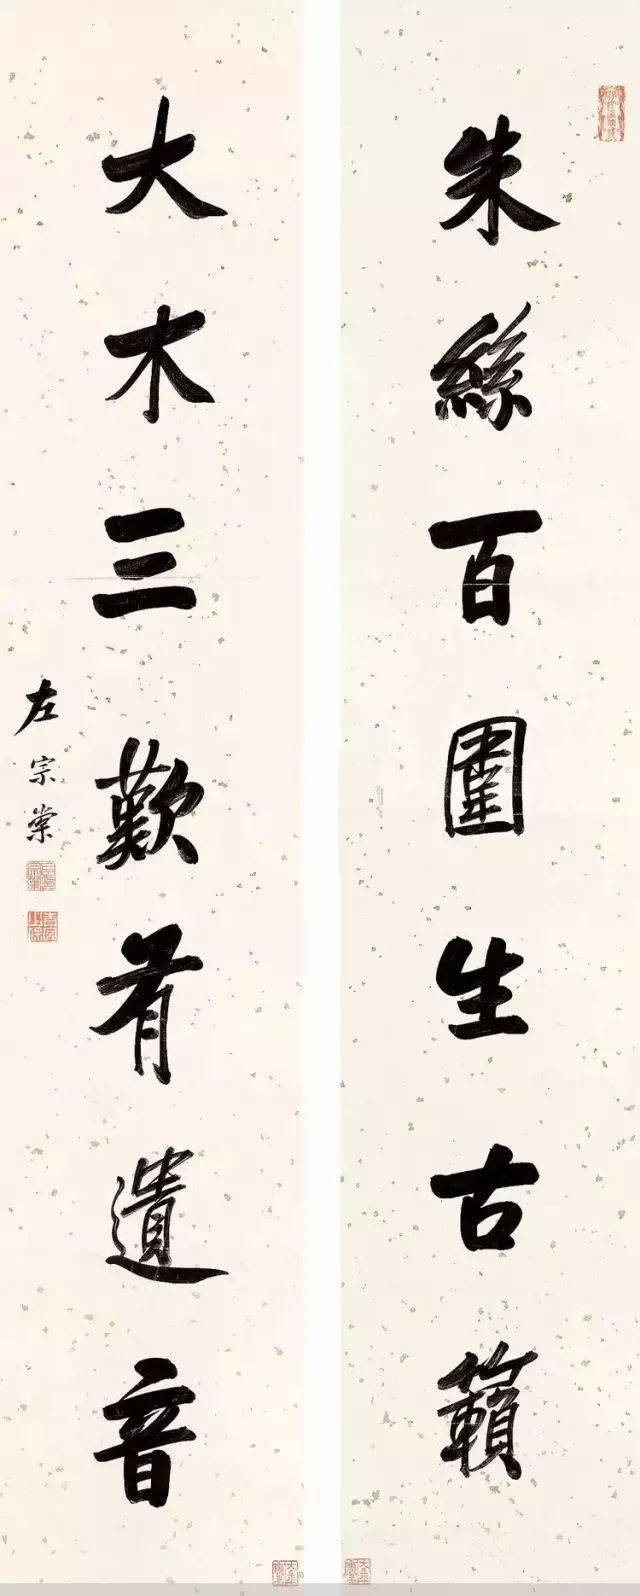 朱絲百圍生古籟
大木三歎有遺音
左宗棠